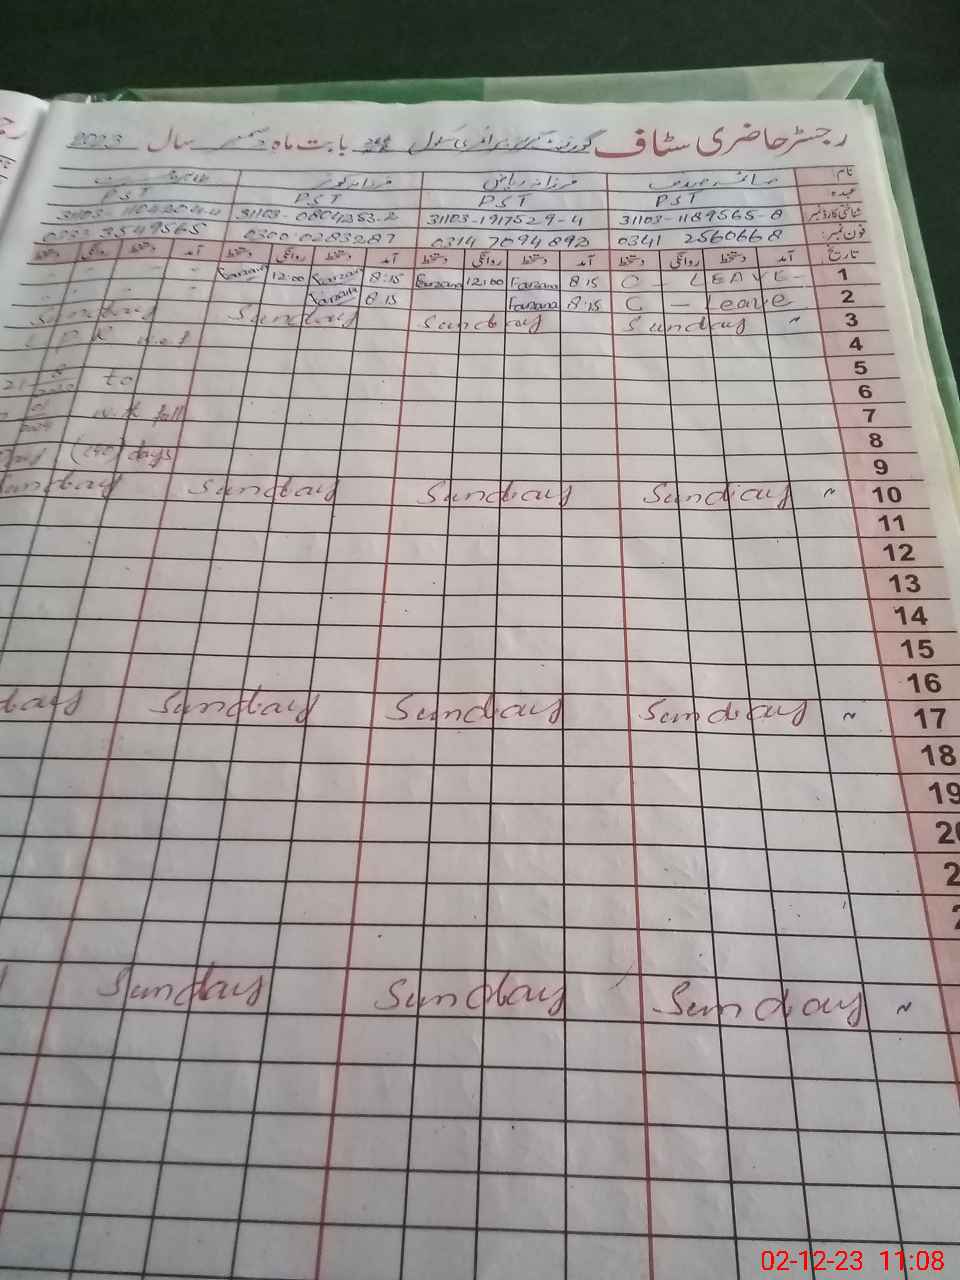 رجسٹر حاضری سٹاف گورنمنٹ گرلز پرائمری سکول بابت ماہ دسمبر سال 2023
نام: صائمہ فرزانہ ریاض فرزانہ کوثر
عہدہ PST PST PST PST
شناختی کارڈ نمبر 31103-1189565-8 31103-1917529-4 31103-0804253-2 31103-1104204-4
فون نمبر: 0341 2560668 0314 7094892 0300 0283287 0333 3549565
تاریخ آمد دستخط روانگی دستخط آمد دستخط روانگی دستخط آمد دستخط روانگی دستخط آمد دستخط روانگی دستخط
1 C - LEAVE - 8:15 Farzana 12:00 Farzana 8:15 Farzana 12:00 Farzana
2 C - Leave 8:15 Farzana 8:15 Farzana
3 " Sunday Sunday Sunday Sunday
4 w.e.f
5
6 to
7 w.t full
8
9 days
10 " Sunday Sunday Sunday Sunday
11
12
13
14
15
16
17 " Sunday Sunday Sunday day
18
19
20
2
2
" Sunday Sunday Sunday
02-12-23 11:08